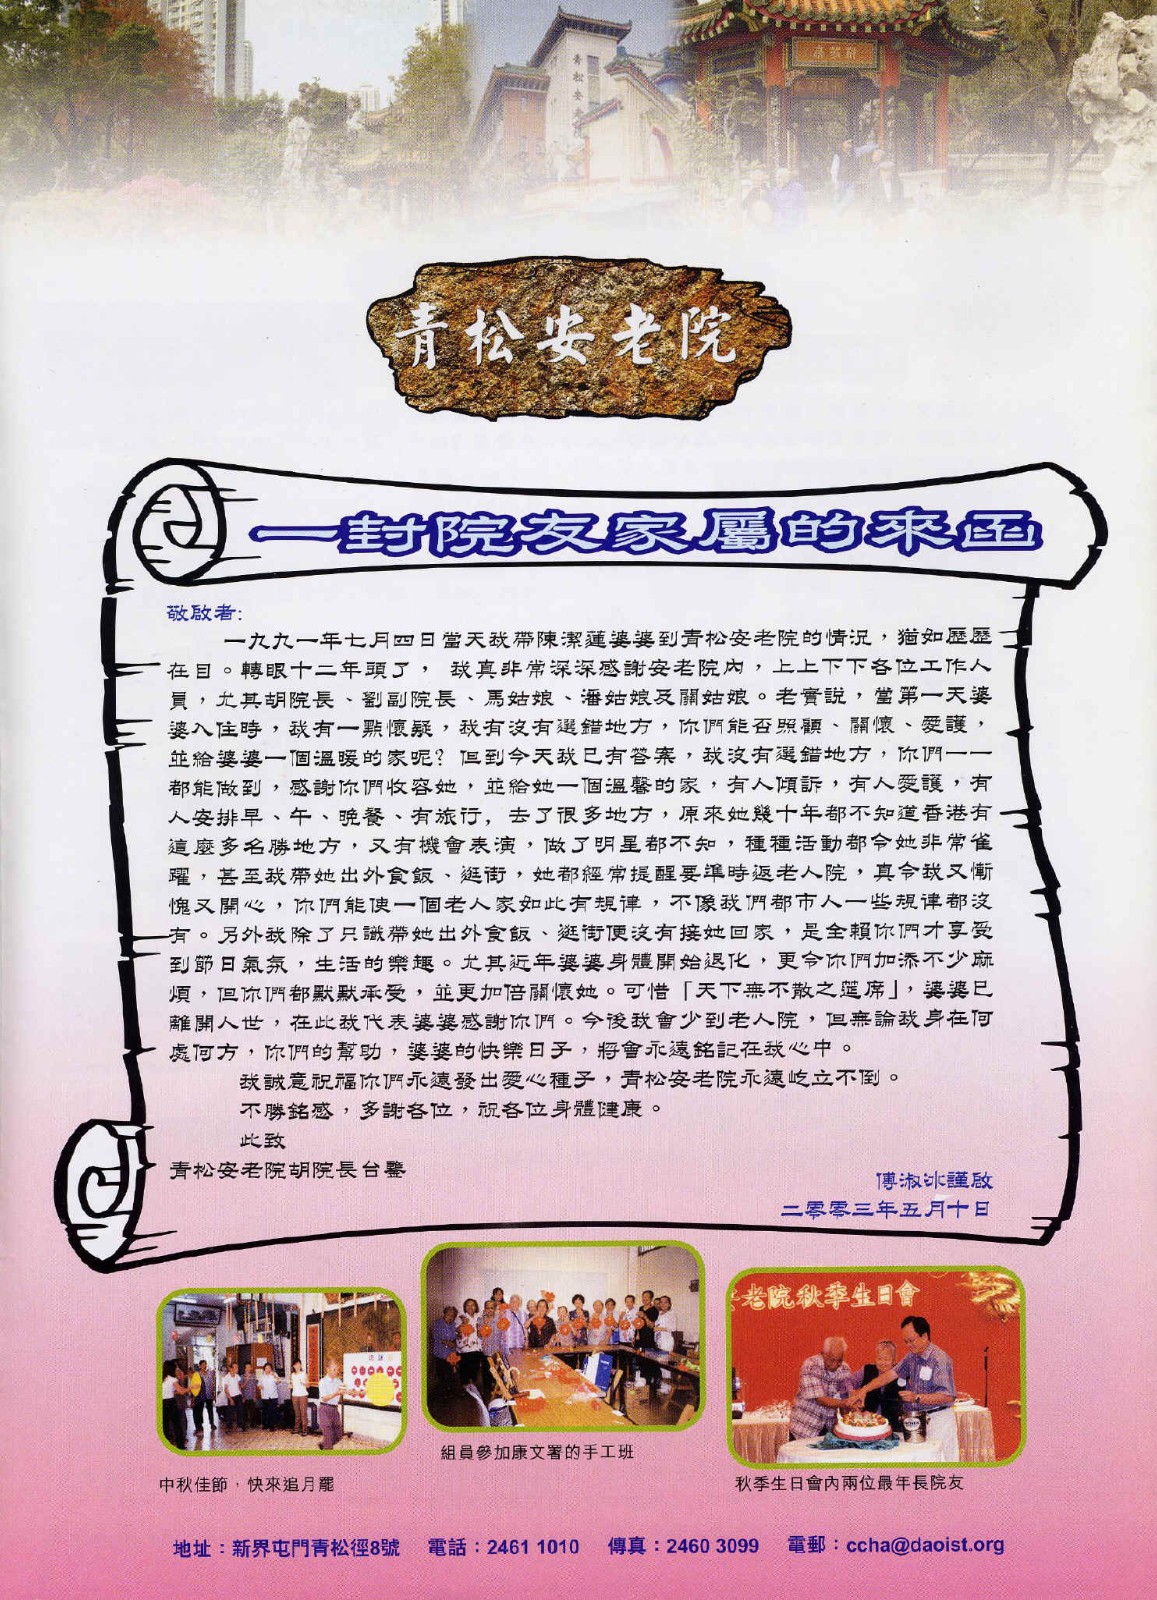 青松安老院
一封院友家屬的來函
敬啟者:
一九九一年七月四日當天我帶陳潔蓮婆婆到青松安老院的情況，猶如歷歷
在目。轉眼十二年頭了， 我真非常深深感謝安老院內，上上下下各位工作人
員，尤其胡院長、劉副院長、馬姑娘、潘姑娘及關姑娘。老實說，當第一天婆
婆入住時，我有一點懷疑，我有沒有選錯地方，你們能否照顧、關懷、愛護，
並給婆婆一個溫暖的家呢？但到今天我已有答案，我沒有選錯地方，你們一一
都能做到，感謝你們收容她，並給她一個溫馨的家，有人傾訴，有人愛護，有
人安排早、午、晚餐、有旅行，去了很多地方，原來她幾十年都不知道香港有
這麼多名勝地方，又有機會表演，做了明星都不知，種種活動都令她非常雀
躍，甚至我帶她出外食飯、逛街，她都經常提醒要準時返老人院，真令我又慚
愧又開心，你們能使一個老人家如此有規律，不像我們都市人一些規律都沒
有。另外我除了只識帶她出外食飯、逛街便沒有接她回家，是全賴你們才享受
到節日氣氛，生活的樂趣。尤其近年婆婆身體開始退化，更令你們加添不少麻
煩，但你們都默默承受，並更加倍關懷她。可惜「天下無不散之筵席」，婆婆已
離開人世，在此我代表婆婆感謝你們。今後我會少到老人院，但無論我身在何
處何方，你們的幫助，婆婆的快樂日子，將會永遠銘記在我心中。
我誠意祝福你們永遠發出愛心種子，青松安老院永遠屹立不倒。
不勝銘感，多謝各位，祝各位身體健康。
此致
青松安老院胡院長台鑒
傅淑冰謹啟
二零零三年五月十日
老院秋季生日會
中秋佳節，快來追月罷
組員參加康文署的手工班
秋季生日會內兩位最年長院友
地址：新界屯門青松徑8號 電話：2461 1010 傳真：2460 3099 電郵：ccha@daoist.org